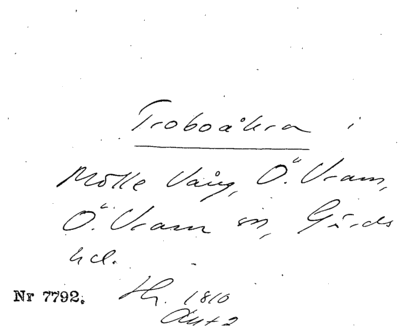 Troboåkra i
Mölle Vång, Ö. Vram,
Ö. Vram sn, Gärds
hd.
Nr 7792. Hh. 1810
Akt 2